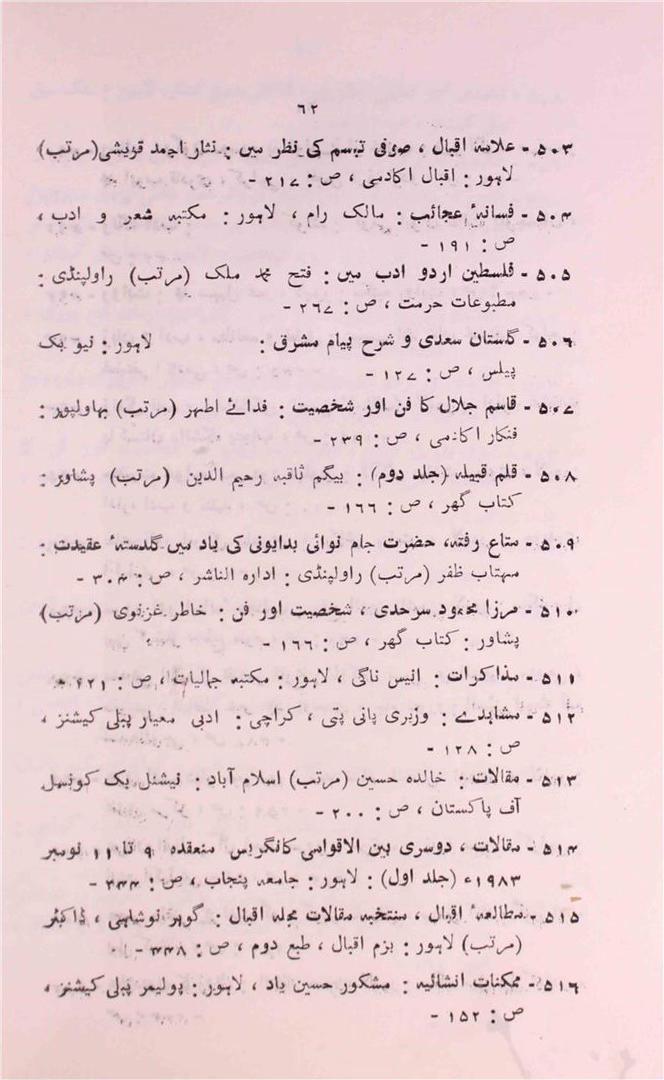 ٦٢
۵۰۳ - علامہ اقبال ، صوفی تبسم کی نظر میں : نثار احمد قریشی (مرتب)
لاہور : اقبال اکادمی ، ص : ۲۱۷ -
۵۰۴ - فسانۂ عجائب : مالک رام ، لاہور : مکتبہ شعر و ادب ،
ص : ۱۹۱ -
۵۰۵ - فلسطین اردو ادب میں : فتح محمد ملک (مرتب) راولپنڈی :
مطبوعات حرمت ، ص : ۲۶۷ -
۵۰۶ - گلستان سعدی و شرح پیام مشرق : لاہور : نیو بک
پیلس ، ص : ۱۲۷ -
۵۰۷ - قاسم جلال کا فن اور شخصیت : فدائے اطہر (مرتب) بہاولپور :
فنکار اکادمی ، ص : ۲۳۹ -
۵۰۸ - قلم قبیلہ (جلد دوم) : بیگم ثاقبہ رحیم الدین (مرتب) پشاور :
کتاب گھر ، ص : ۱۶۶ -
۵۰۹ - متاع رفتہ، حضرت جام نوائی بدایونی کی یاد میں گلدستۂ عقیدت :
مہتاب ظفر (مرتب) راولپنڈی : ادارہ الناشر ، ص : ۳۰۴ -
۵۱۰ - مرزا محمود سرحدی ، شخصیت اور فن : خاطر غزنوی (مرتب)
پشاور : کتاب گھر ، ص : ۱۶۶ -
۵۱۱ - مذاکرات : انیس ناگی ، لاہور : مکتبہ جمالیات ، ص : ۲۲۱ -
۵۱۲ - مشاہدے : وزیری پانی پتی ، کراچی : ادبی معیار پبلی کیشنز ،
ص : ۱۲۸ -
۵۱۳ - مقالات : خالدہ حسین (مرتب) اسلام آباد : نیشنل بک کونسل
آف پاکستان ، ص : ۲۰۰ -
۵۱۴ - مقالات ، دوسری بین الاقوامی کانگریس منعقدہ ۹ تا ۱۱ نومبر
۱۹۸۳ء (جلد اول) : لاہور : جامعہ پنجاب ، ص : ۳۴۴ -
۵۱۵ - مطالعۂ اقبال ، منتخبہ مقالات مجلہ اقبال : گوہر نوشاہی ، ڈاکٹر
(مرتب) لاہور : بزم اقبال ، طبع دوم ، ص : ۴۴۸ -
۵۱۶ - ممکنات انشائیہ : مشکور حسین یاد ، لاہور : پولیمر پبلی کیشنز ،
ص : ۱۵۲ -